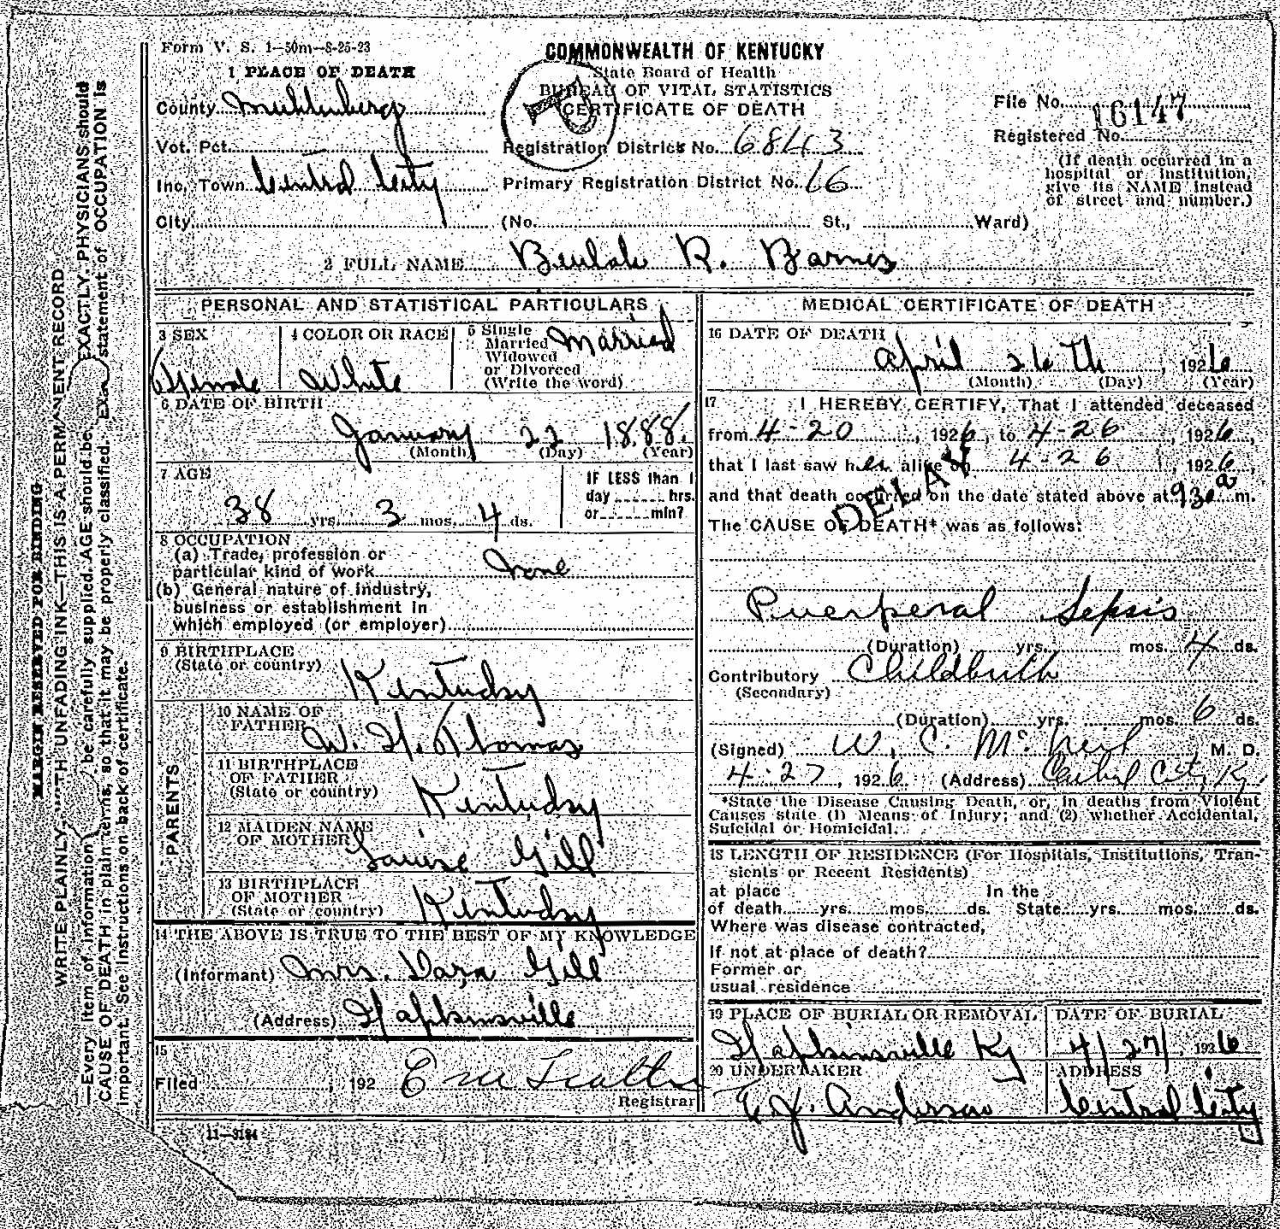 Form V. S. 1—50m—8-25-23
COMMONWEALTH OF KENTUCKY
State Board of Health
BUREAU OF VITAL STATISTICS
CERTIFICATE OF DEATH
1 PLACE OF DEATH
County Muhlenberg
Vot. Pct.
Inc. Town Central City
City
Registration District No. 6843
Primary Registration District No. 16
(No. St., Ward)
File No. 16147
Registered No.
(If death occurred in a
hospital or institution,
give its NAME instead
of street and number.)
2 FULL NAME Beulah R. Barnes
PERSONAL AND STATISTICAL PARTICULARS
3 SEX
Female
4 COLOR OR RACE
White
5 Single
Married
Widowed
or Divorced
(Write the word)
Married
6 DATE OF BIRTH
January 22 1888
(Month) (Day) (Year)
7 AGE
38 yrs. 3 mos. 4 ds.
IF LESS than 1
day hrs.
or min?
8 OCCUPATION
(a) Trade, profession or
particular kind of work None
(b) General nature of industry,
business or establishment in
which employed (or employer)
9 BIRTHPLACE
(State or country) Kentucky
PARENTS
10 NAME OF
FATHER W. H. Thomas
11 BIRTHPLACE
OF FATHER
(State or country) Kentucky
12 MAIDEN NAME
OF MOTHER Louise Gill
13 BIRTHPLACE
OF MOTHER
(State or country) Kentucky
14 THE ABOVE IS TRUE TO THE BEST OF MY KNOWLEDGE
(Informant) Mrs. Gill
(Address) Hopkinsville
15
Filed , 192
Registrar
11—3184
MEDICAL CERTIFICATE OF DEATH
16 DATE OF DEATH
April 26th , 1926
(Month) (Day) (Year)
17 I HEREBY CERTIFY, That I attended deceased
from 4-20 , 1926, to 4-26 , 1926,
that I last saw her alive on 4-26 , 1926,
and that death occurred on the date stated above at 930 a m.
DELAY
The CAUSE OF DEATH* was as follows:
Puerperal Sepsis
(Duration) yrs. mos. 4 ds.
Contributory Childbirth
(Secondary)
(Duration) yrs. mos. 6 ds.
(Signed) W. C. McNeil, M. D.
4-27, 1926 (Address) Central City Ky.
*State the Disease Causing Death, or, in deaths from Violent
Causes state (1) Means of Injury; and (2) whether Accidental,
Suicidal or Homicidal.
18 LENGTH OF RESIDENCE (For Hospitals, Institutions, Tran-
sients or Recent Residents)
at place In the
of death yrs. mos. ds. State yrs. mos. ds.
Where was disease contracted,
If not at place of death?
Former or
usual residence
19 PLACE OF BURIAL OR REMOVAL
Hopkinsville Ky
DATE OF BURIAL
4/27/, 1926
20 UNDERTAKER
E. J. Anderson
ADDRESS
Central City
MARGIN RESERVED FOR BINDING
WRITE PLAINLY, WITH UNFADING INK—THIS IS A PERMANENT RECORD
—Every item of information be carefully supplied. AGE should be EXACTLY. PHYSICIANS should
CAUSE OF DEATH in plain terms, so that it may be properly classified. statement of OCCUPATION is
important. See instructions on back of certificate.